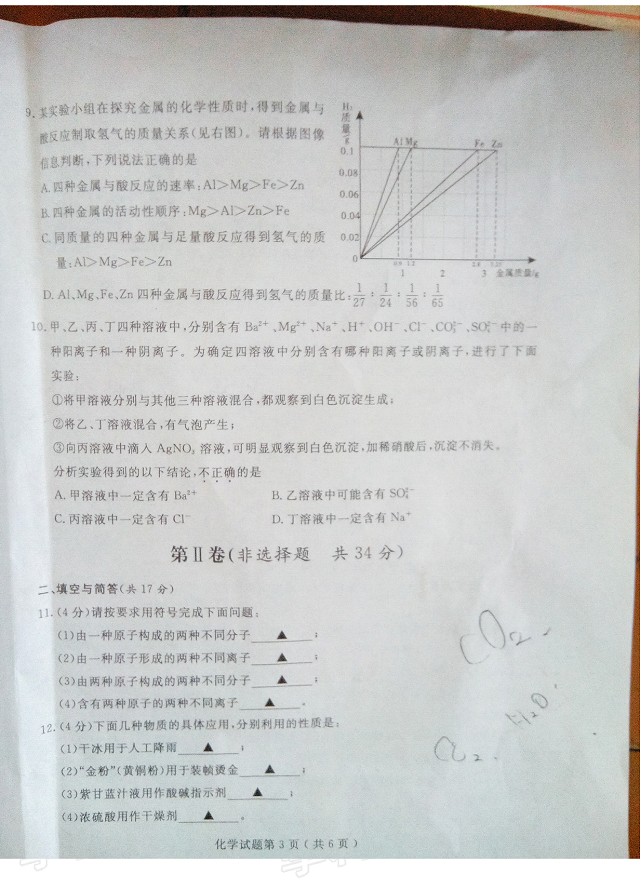 9.某实验小组在探究金属的化学性质时,得到金属与
酸反应制取氢气的质量关系(见右图)。请根据图像
信息判断,下列说法正确的是
A.四种金属与酸反应的速率:Al>Mg>Fe>Zn
B.四种金属的活动性顺序:Mg>Al>Zn>Fe
C.同质量的四种金属与足量酸反应得到氢气的质
量:Al>Mg>Fe>Zn
H₂质量/g
Al Mg Fe Zn
0.1
0.08
0.06
0.04
0.02
0
0.9 1.2 2.8 3.25
1 2 3 金属质量/g
D.Al、Mg、Fe、Zn 四种金属与酸反应得到氢气的质量比:1/27:1/24:1/56:1/65
10.甲、乙、丙、丁四种溶液中,分别含有 Ba²⁺、Mg²⁺、Na⁺、H⁺、OH⁻、Cl⁻、CO₃²⁻、SO₄²⁻ 中的一
种阳离子和一种阴离子。为确定四溶液中分别含有哪种阳离子或阴离子,进行了下面
实验:
①将甲溶液分别与其他三种溶液混合,都观察到白色沉淀生成;
②将乙、丁溶液混合,有气泡产生;
③向丙溶液中滴入 AgNO₃ 溶液,可明显观察到白色沉淀,加稀硝酸后,沉淀不消失。
分析实验得到的以下结论,不正确的是
A.甲溶液中一定含有 Ba²⁺ B.乙溶液中可能含有 SO₄²⁻
C.丙溶液中一定含有 Cl⁻ D.丁溶液中一定含有 Na⁺
第Ⅱ卷(非选择题 共 34 分)
二、填空与简答(共 17 分)
11.(4 分)请按要求用符号完成下面问题:
(1)由一种原子构成的两种不同分子▲;
(2)由一种原子形成的两种不同离子▲;
(3)由两种原子构成的两种不同分子▲;
(4)含有两种原子的两种不同离子▲。
CO₂
12.(4 分)下面几种物质的具体应用,分别利用的性质是:
H₂O
(1)干冰用于人工降雨▲;
(2)“金粉”(黄铜粉)用于装帧烫金▲;
(3)紫甘蓝汁液用作酸碱指示剂▲;
(4)浓硫酸用作干燥剂▲。
化学试题第 3 页(共 6 页)